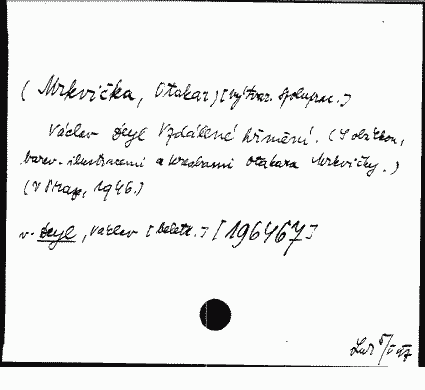 (Mrkvička, Otakar) [výtvar. spoluprac.]
Václav Deyl Vzdálené hřmění. (S obálkou,
barev. ilustracemi a kresbami Otakara Mrkvičky.)
(V Praze, 1946.)
v. Deyl, Václav [Beletr.] [196467]